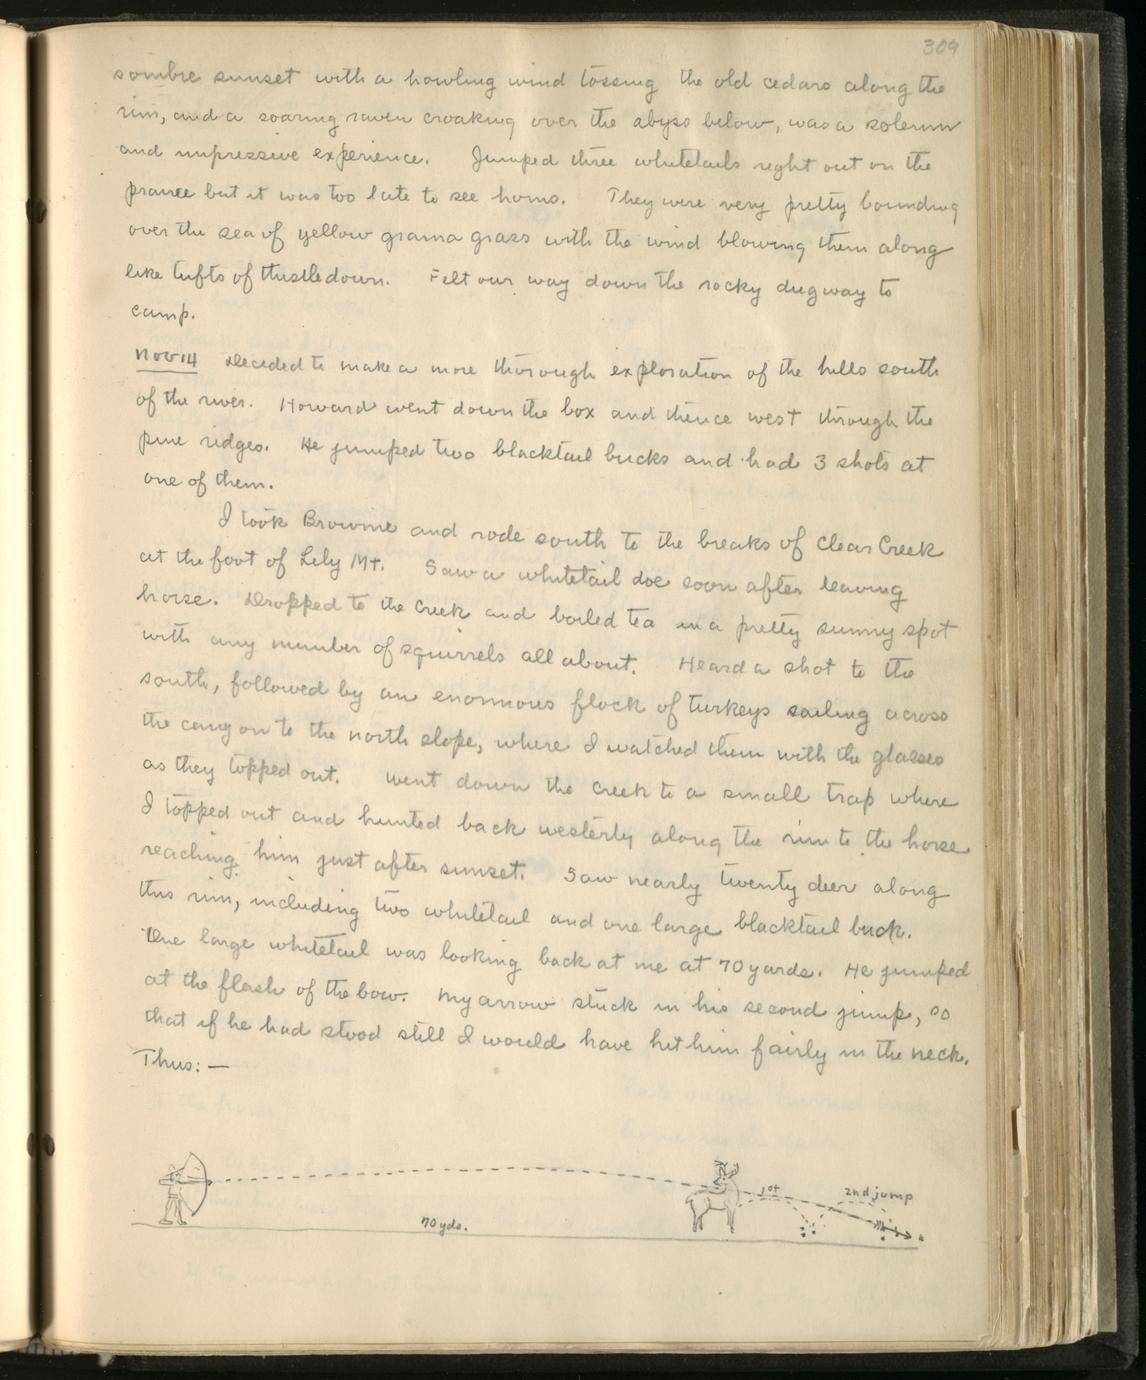 309
sombre sunset with a howling wind tossing the old cedars along the
rim, and a soaring raven croaking over the abyss below, was a solemn
and impressive experience. Jumped three whitetails right out on the
prairie but it was too late to see horns. They were very pretty bounding
over the sea of yellow grama grass with the wind blowing them along
like tufts of thistledown. Felt our way down the rocky dugway to
camp.
Nov 14 Decided to make a more thorough exploration of the hills south
of the river. Howard went down the box and thence west through the
pine ridges. He jumped two blacktail bucks and had 3 shots at
one of them.
I took Brownie and rode south to the breaks of Clear Creek
at the foot of Lily Mt. Saw a whitetail doe soon after leaving
horse. Dropped to the creek and boiled tea in a pretty sunny spot
with any number of squirrels all about. Heard a shot to the
south, followed by an enormous flock of turkeys sailing across
the canyon to the north slope, where I watched them with the glasses
as they topped out. Went down the creek to a small trap where
I topped out and hunted back westerly along the rim to the horse
reaching him just after sunset. Saw nearly twenty deer along
this rim, including two whitetail and one large blacktail buck.
One large whitetail was looking back at me at 70 yards. He jumped
at the flash of the bow. My arrow stuck in his second jump, so
that if he had stood still I would have hit him fairly in the neck.
Thus: —
1st
2nd jump
70 yds.